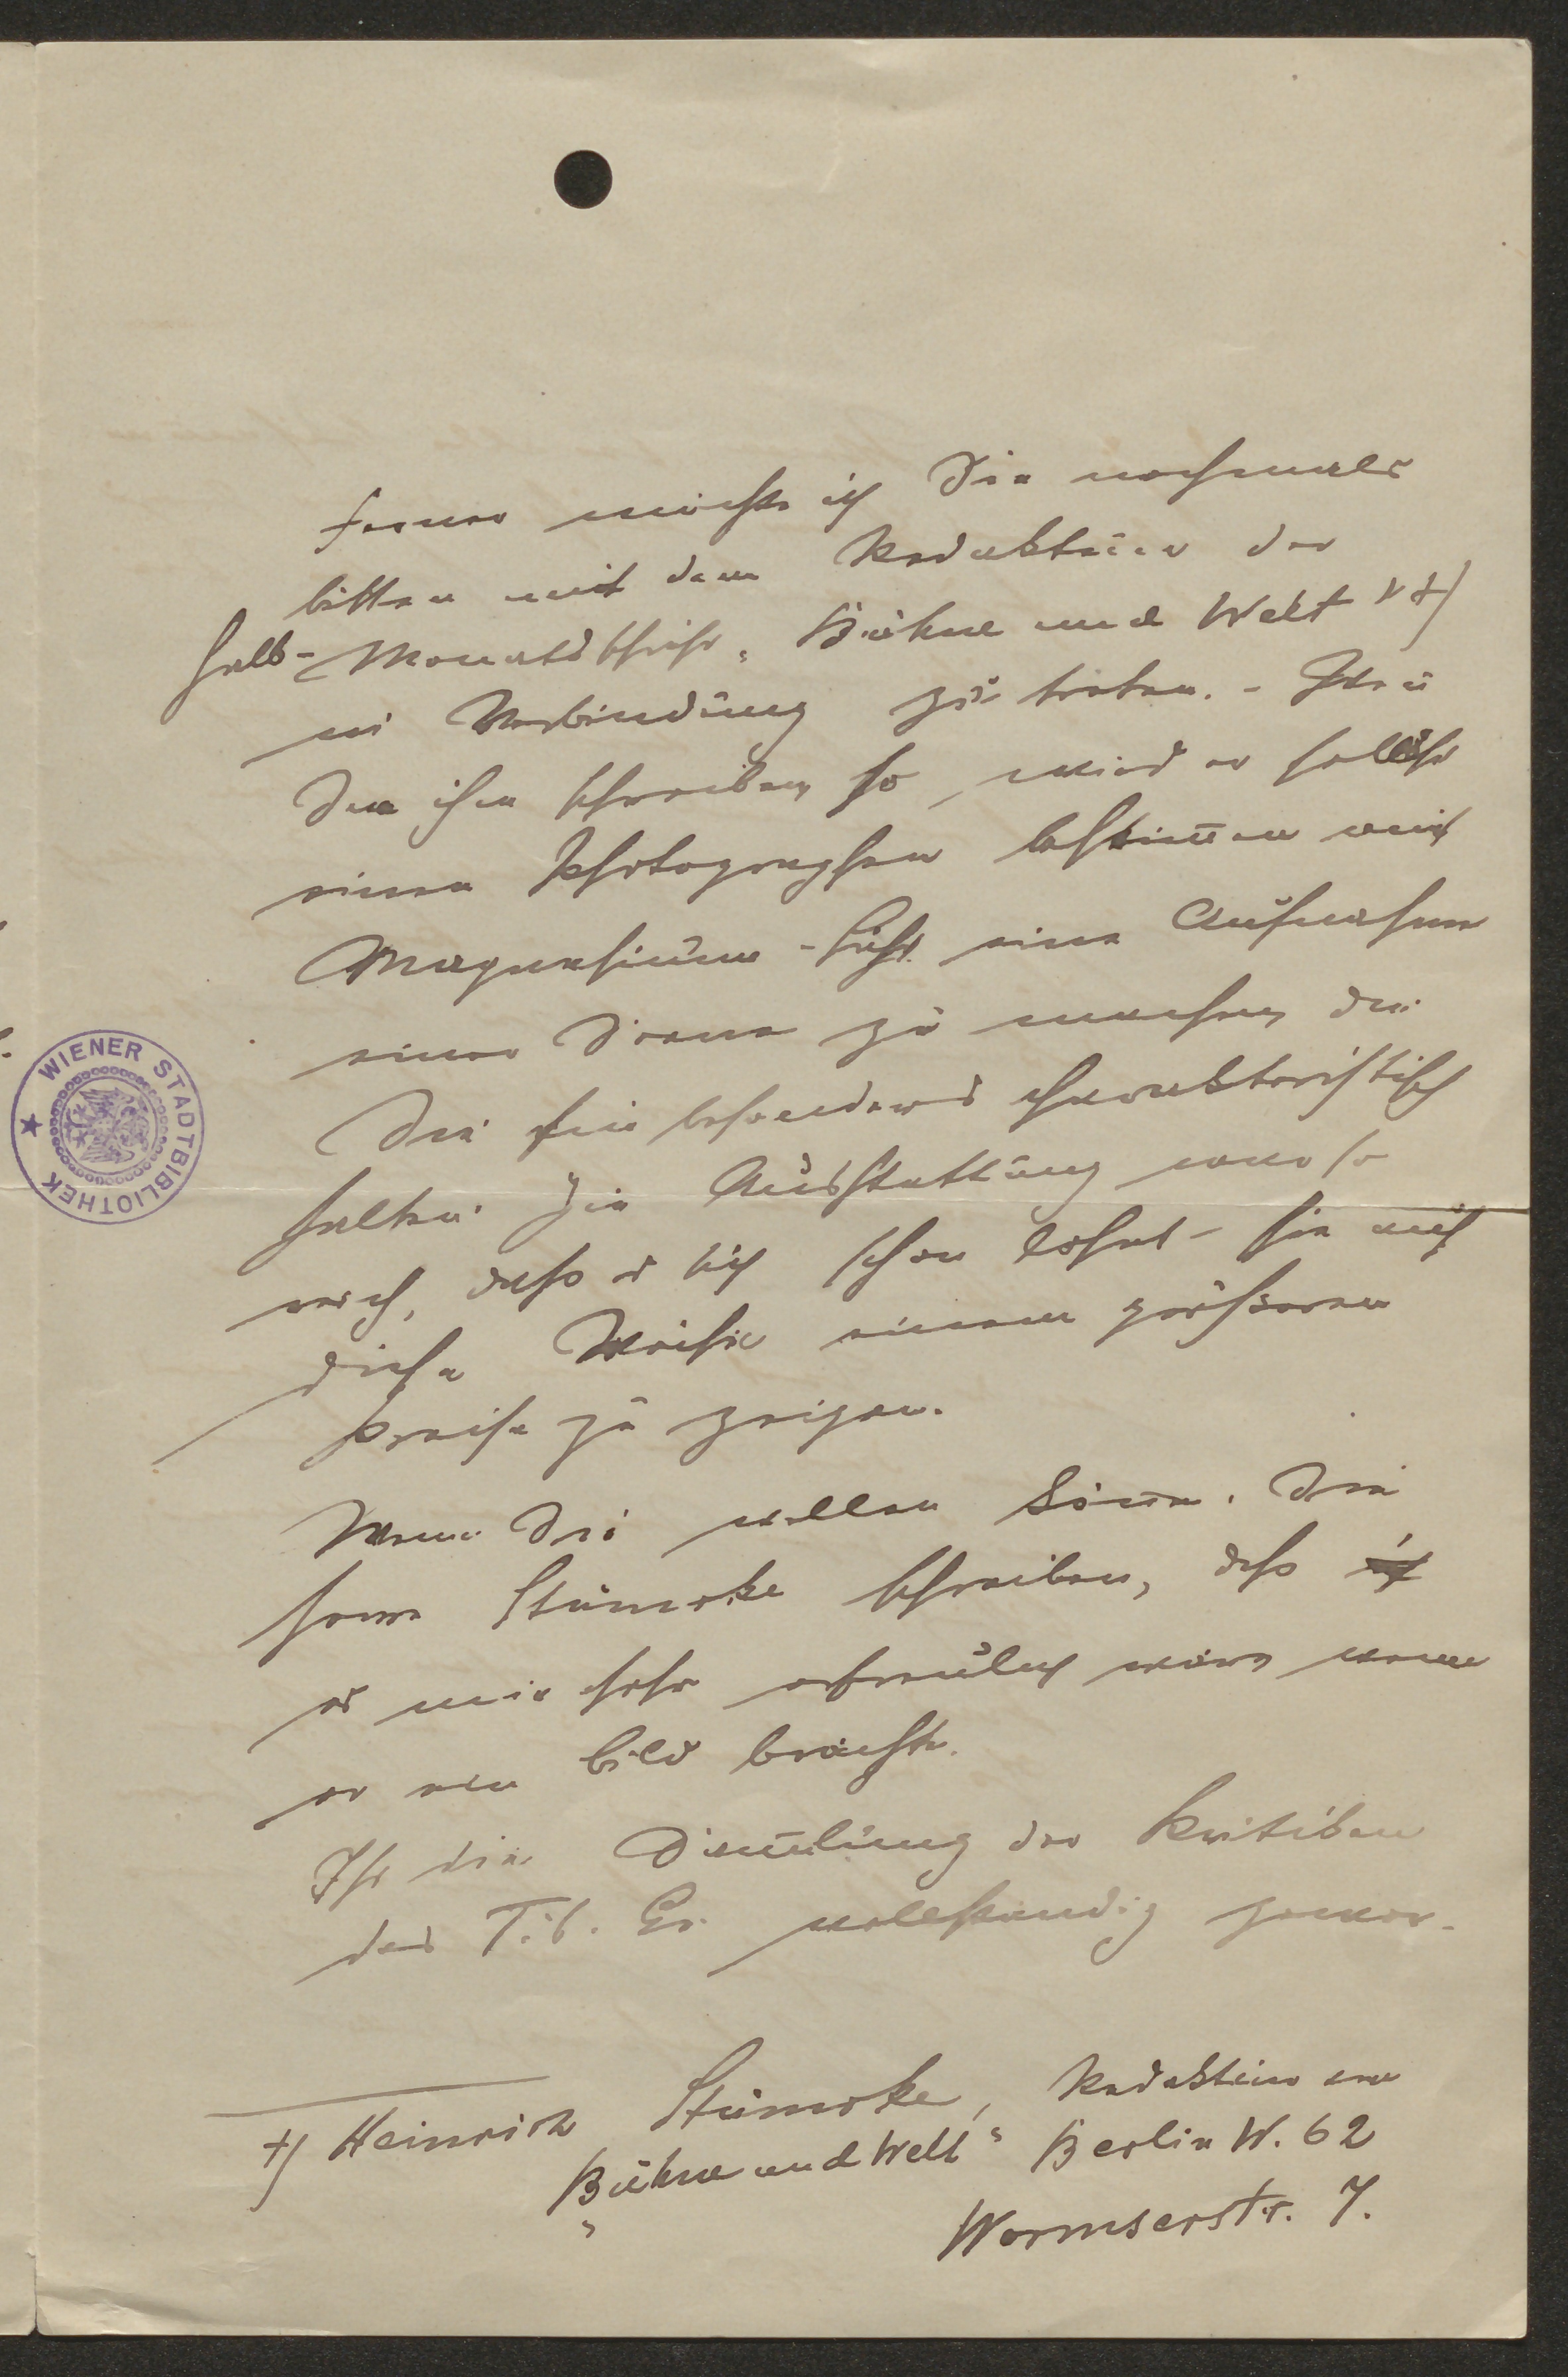 Ferner möchte ich Sie nochmals
bitten mit dem Redakteur der
Halb-Monatsschrift „Bühne und Welt" +)
in Verbindung zu treten. - Wenn
Sie ihm schreiben, so wird er selbst
einen Photographen bestimmen mit
Magnesium-Licht eine Aufnahme
einer Scene zu machen, die
Sie für besonders charakteristisch
halten. Die Ausstattung war so
reich, dass es sich schon lohnt - sie auf
diese Weise einem grösseren
Kreise zu zeigen.
Wenn Sie wollen können Sie
Herrn Stümcke schreiben, dass
es mir sehr erfreulich wäre wenn
er ein Bild brächte.
Ist die Sammlung der Kritiken
des T.b. Er. vollständig gewor-
+) Heinrich Stümcke, Redakteur von
„Bühne und Welt" Berlin W. 62
Wormserstr. 7.
WIENER STADTBIBLIOTHEK